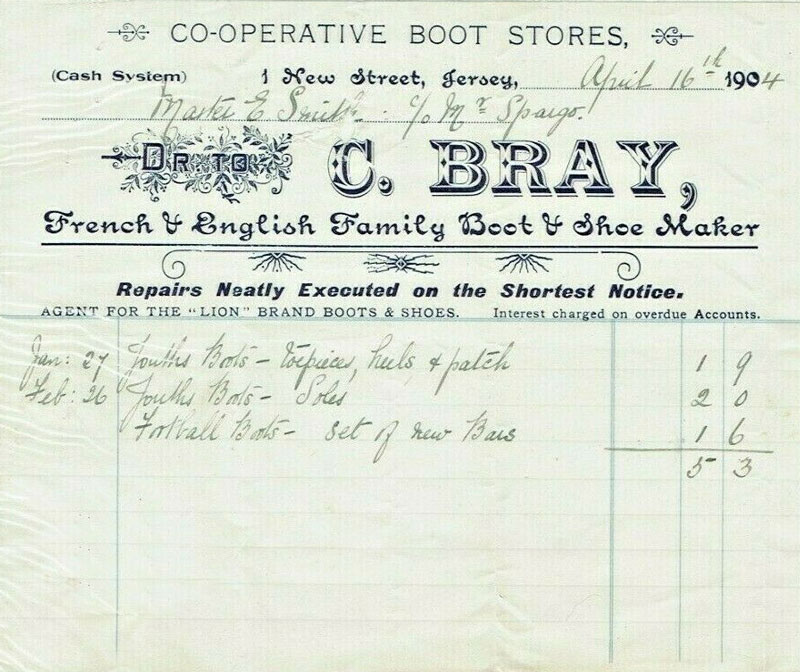 CO-OPERATIVE BOOT STORES,
(Cash System) 1 New Street, Jersey, April 16th 1904
Master E Smith. c/o Mr Spargo.
DR. TO C. BRAY,
French & English Family Boot & Shoe Maker
Repairs Neatly Executed on the Shortest Notice.
AGENT FOR THE "LION" BRAND BOOTS & SHOES. Interest charged on overdue Accounts.
Jan: 27 Youths Boots - toepieces, heels, & patch 1 9
Feb: 26 Youths Boots - Soles 2 0
Football Boots - Set of new Bars 1 6
5 3